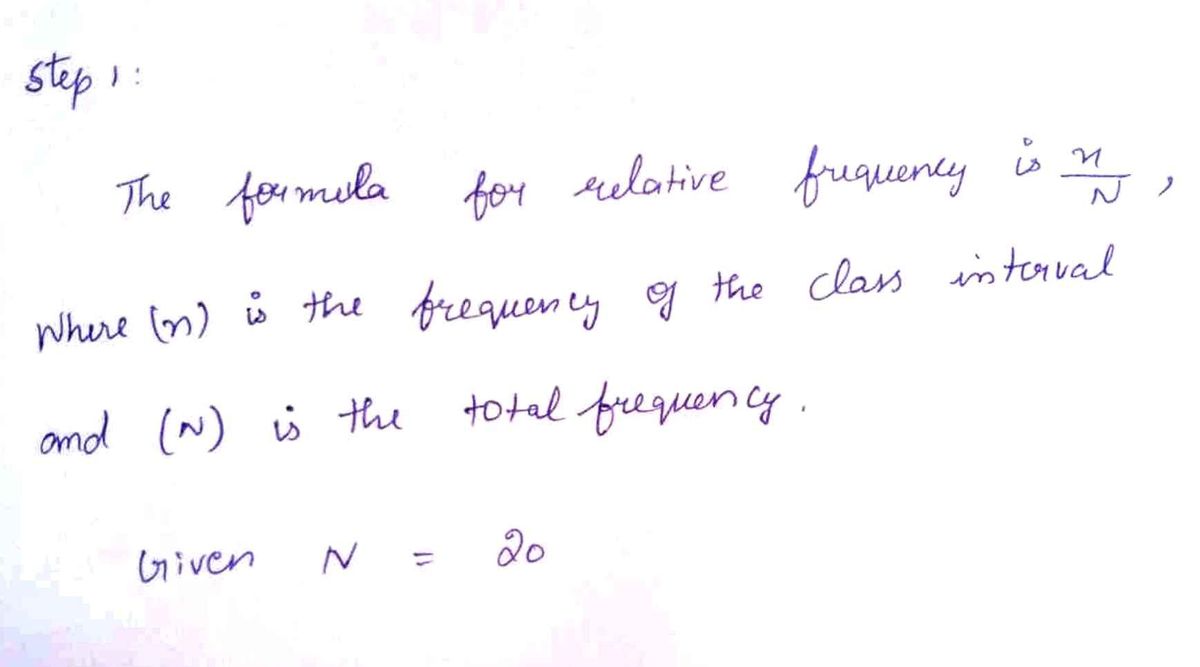 Step 1:
The formula for relative frequency is n/N,
Where (n) is the frequency of the class interval
and (N) is the total frequency.
Given N = 20